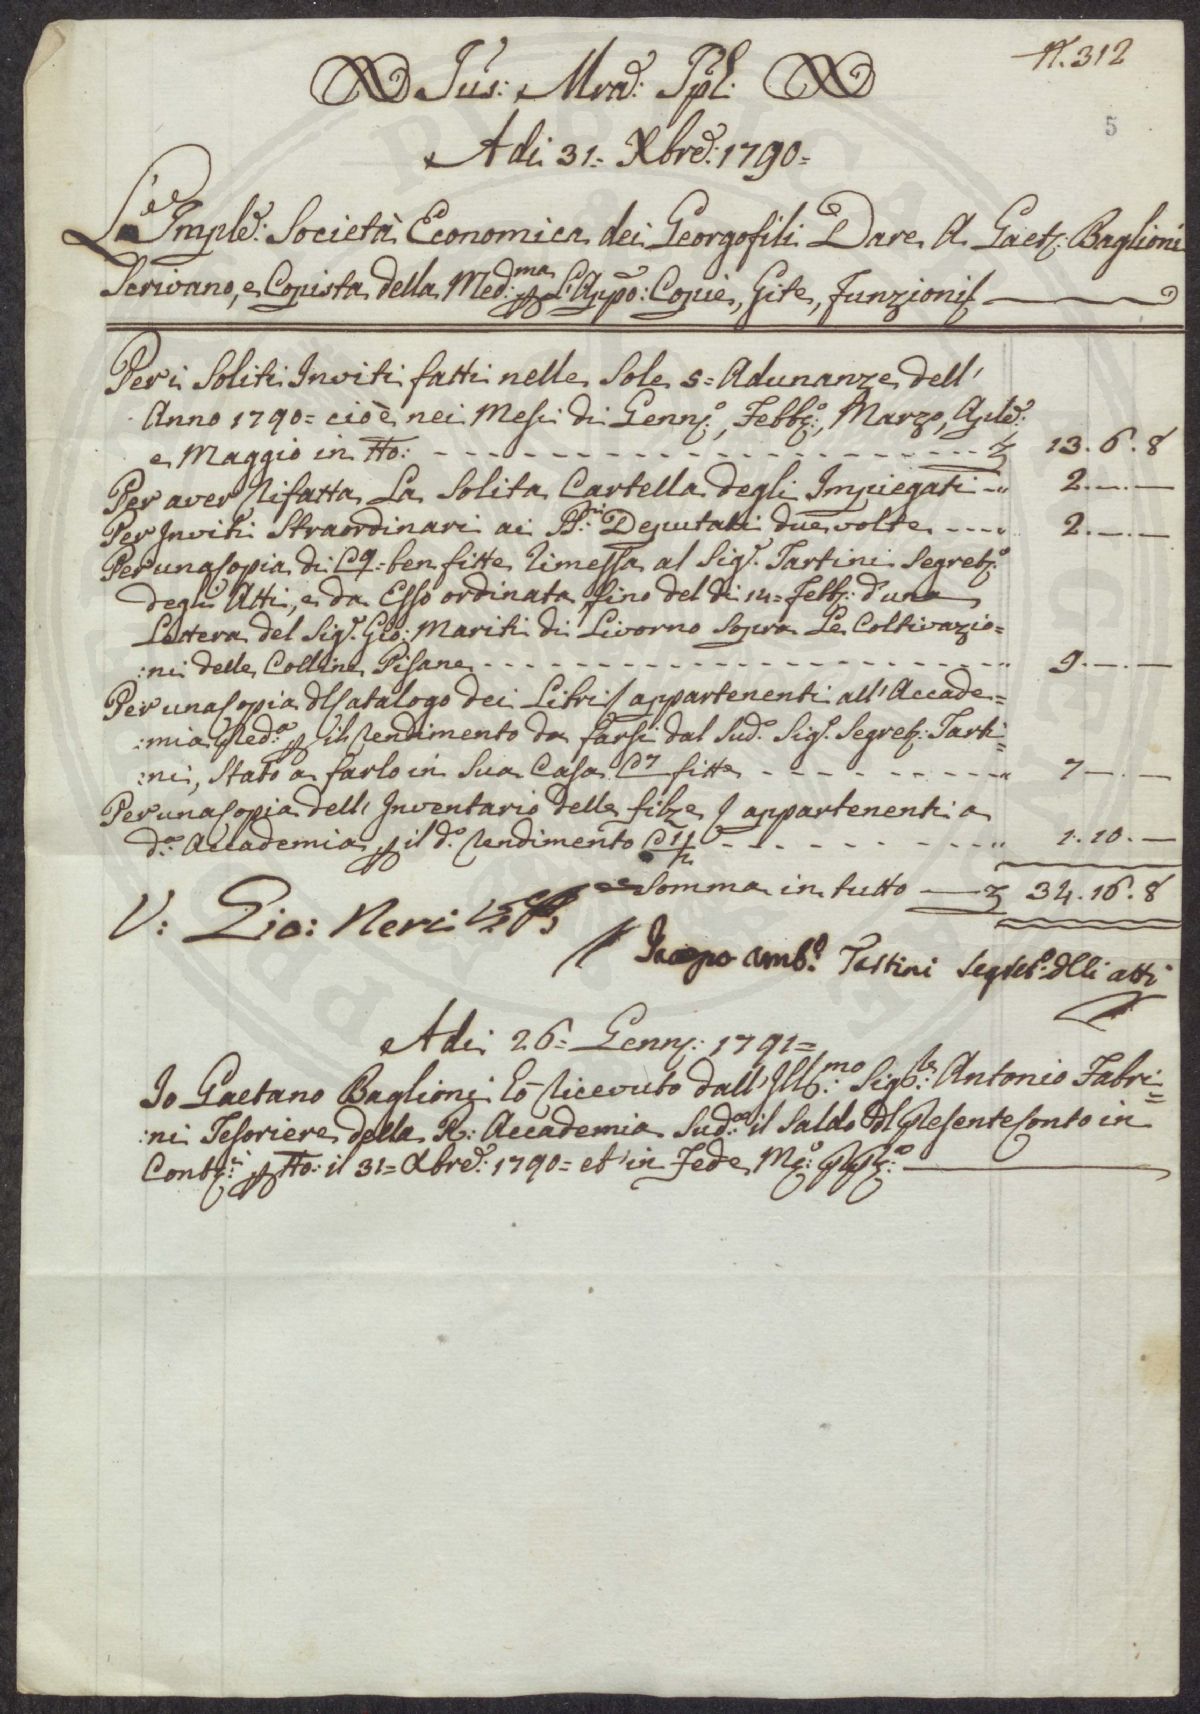 N. 312
5
Jus: Mrae: Jpl:
A di 31= Xbre: 1790=
La Imple: Società Economica dei Georgofili Dare A Gaet: Baglioni
Scrivano, e Copista della Med:ma p l'Appo: Copie, Gite, funzioni
Per i Soliti Inviti fatti nelle Sole 5= Adunanze dell'
Anno 1790= cioè nei Mesi di Genno:, Febbo:, Marzo, Aple:
e Maggio in tto: 13. 6. 8
Per aver rifatta La Solita Cartella degli Impiegati 2.—.—
Per Inviti Straordinari ai Deputati due volte 2.—.—
Per una Copia di C 9= ben fitte rimessa al Sig.r Tartini Segret:o
degli Atti, e da Esso ordinata, fino del dì 14= Febb: d'una
Lettera del Sig.r Gio: Mariti di Livorno Sopra Le Coltivazio=
:ni delle Colline Pisane 9.—.—
Per una Copia dl Catalogo dei Libri appartenenti all'Accade=
:mia Med:a p il rendimento da farsi dal Sud.o Sig.r Segret: Tarti=
:ni, Stato a farlo in Sua Casa C 7 fitte 7—.—
Per una Copia dell'Inventario delle filze appartenenti a
d:a Accademia, p il d.o rendimento C 1 1/2 1. 10.—
Somma in tutto 34. 16. 8
V: Gio: Neri
Jacopo Amb.o Tartini Segret.o dlli atti
A di 26= Genn: 1791=
Io Gaetano Baglioni hò ricevuto dall'Ill:mo Sig:re Antonio Fabri=
:ni Tesoriere della R: Accademia Sud:a il Saldo dl presente Conto in
Cont:i p tto: il 31= Xbre: 1790= et in Fede Mo: